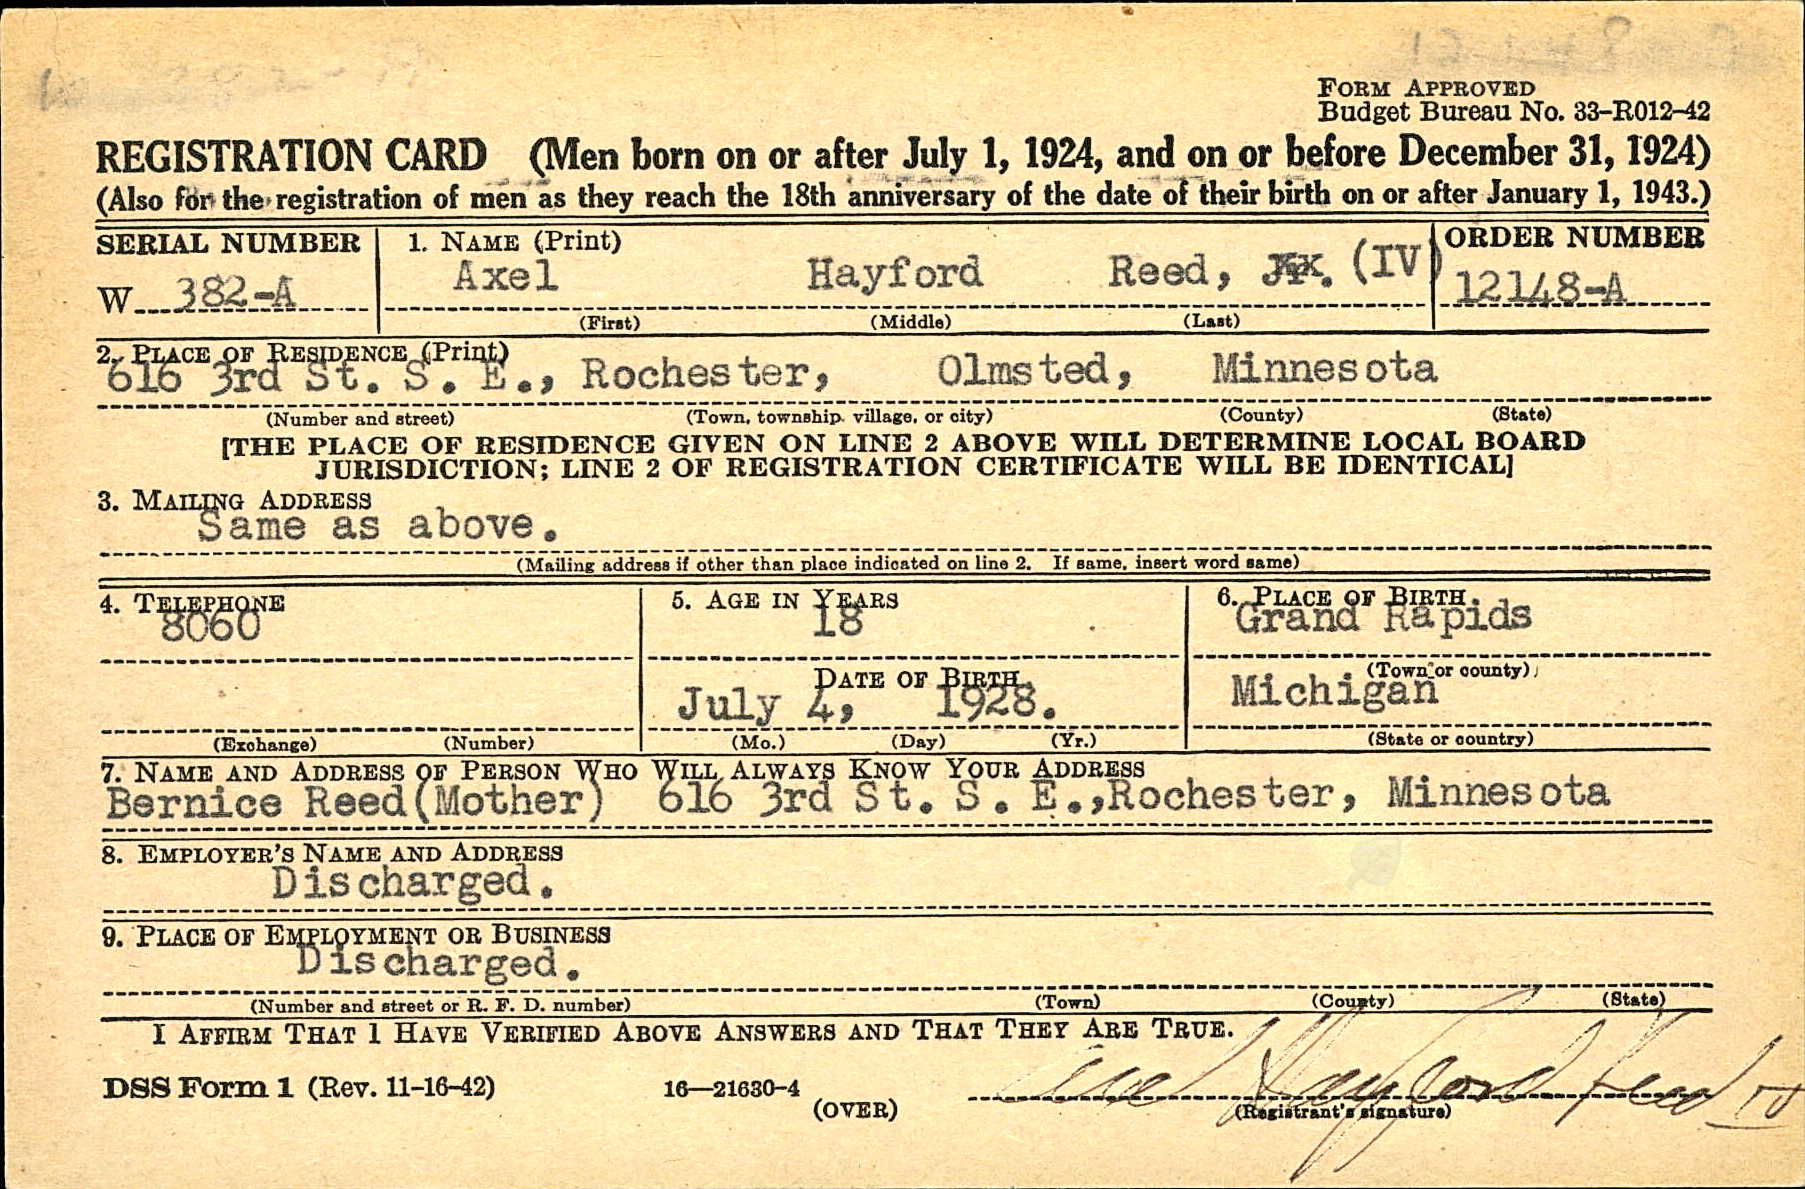 FORM APPROVED
Budget Bureau No. 33-R012-42
REGISTRATION CARD (Men born on or after July 1, 1924, and on or before December 31, 1924)
(Also for the registration of men as they reach the 18th anniversary of the date of their birth on or after January 1, 1943.)
SERIAL NUMBER 1. NAME (Print) ORDER NUMBER
W 382-A Axel Hayford Reed, (IV) 12148-A
(First) (Middle) (Last)
2. PLACE OF RESIDENCE (Print)
616 3rd St. S. E., Rochester, Olmsted, Minnesota
(Number and street) (Town, township, village, or city) (County) (State)
[THE PLACE OF RESIDENCE GIVEN ON LINE 2 ABOVE WILL DETERMINE LOCAL BOARD
JURISDICTION; LINE 2 OF REGISTRATION CERTIFICATE WILL BE IDENTICAL]
3. MAILING ADDRESS
Same as above.
(Mailing address if other than place indicated on line 2. If same, insert word same)
4. TELEPHONE 5. AGE IN YEARS 6. PLACE OF BIRTH
8060 18 Grand Rapids
(Town or county)
DATE OF BIRTH
July 4, 1928. Michigan
(Exchange) (Number) (Mo.) (Day) (Yr.) (State or country)
7. NAME AND ADDRESS OF PERSON WHO WILL ALWAYS KNOW YOUR ADDRESS
Bernice Reed(Mother) 616 3rd St. S. E.,Rochester, Minnesota
8. EMPLOYER'S NAME AND ADDRESS
Discharged.
9. PLACE OF EMPLOYMENT OR BUSINESS
Discharged.
(Number and street or R. F. D. number) (Town) (County) (State)
I AFFIRM THAT I HAVE VERIFIED ABOVE ANSWERS AND THAT THEY ARE TRUE.
Axel Hayford Reed IV
DSS Form 1 (Rev. 11-16-42) 16—21630-4 (OVER) (Registrant's signature)